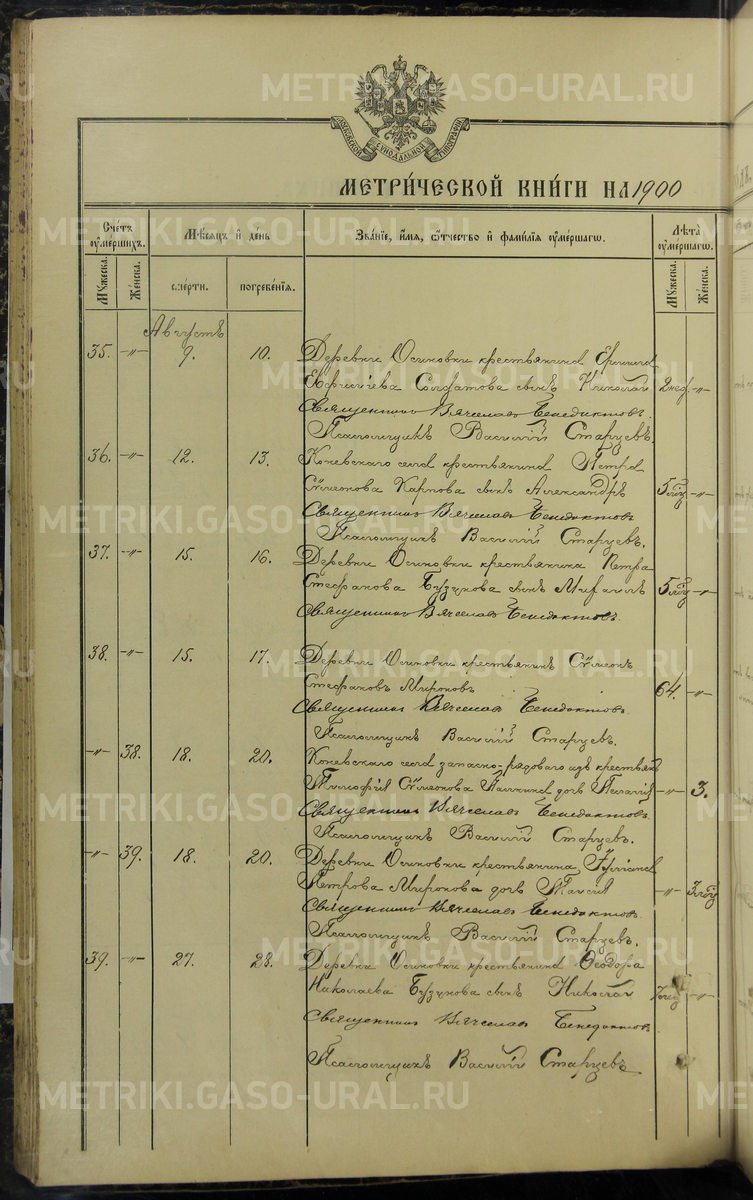 МОСКОВСКОЙ СѴНОДАЛЬНОЙ ТИПОГРАФІИ
МЕТРИ́ЧЕСКОЙ КНИ́ГИ НА 1900
Сче́тъ ᲂу҆ме́ршихъ.
Мѣ́сяцъ и҆ де́нь
Зва́нїе, и҆́мя, ѻ҆́тчество и҆ фами́лїя ᲂу҆ме́ршагѡ.
Лѣ́та ᲂу҆ме́ршагѡ.
Мꙋ́жеска.
Же́нска.
сме́рти.
погребе́нїя.
Мꙋ́жеска.
Же́нска.
Августъ
35. -"- 9. 10. Деревни Осиновки крестьянина
Солдатова сынъ Николай 2 нед. -"-
Священникъ Вячеславъ Бенедиктовъ.
Псаломщикъ Василій Старцевъ.
36. -"- 12. 13. Коневскаго села крестьянина Петра
Сѵмеонова Карпова сынъ Александръ 5 -"-
Священникъ Вячеславъ Бенедиктовъ
Псаломщикъ Василій Старцевъ.
37. -"- 15. 16. Деревни Осиновки крестьянина Петра
Стефанова Бузунова сынъ Михаилъ 5 -"-
Священникъ Вячеславъ Бенедиктовъ.
38. -"- 15. 17. Деревни Осиновки крестьянинъ Сѵмеонъ
Стефановъ Мироновъ 64. -"-
Священникъ Вячеславъ Бенедиктовъ.
Псаломщикъ Василій Старцевъ.
-"- 38. 18. 20. Коневскаго села запасно-рядоваго изъ крестьянъ
Тимофея Сѵмеонова дочь Пелагія -"- 3.
Священникъ Вячеславъ Бенедиктовъ.
Псаломщикъ Василій Старцевъ.
-"- 39. 18. 20. Деревни Осиновки крестьянина Іуліана
Петрова Миронова дочь Таисія -"- 3
Священникъ Вячеславъ Бенедиктовъ
Псаломщикъ Василій Старцевъ.
39. -"- 27. 28. Деревни Осиновки крестьянина Ѳеодора
Николаева Бузунова сынъ Николай -"-
Священникъ Вячеславъ Бенедиктовъ
Псаломщикъ Василій Старцевъ
METRIKI.GASO-URAL.RU